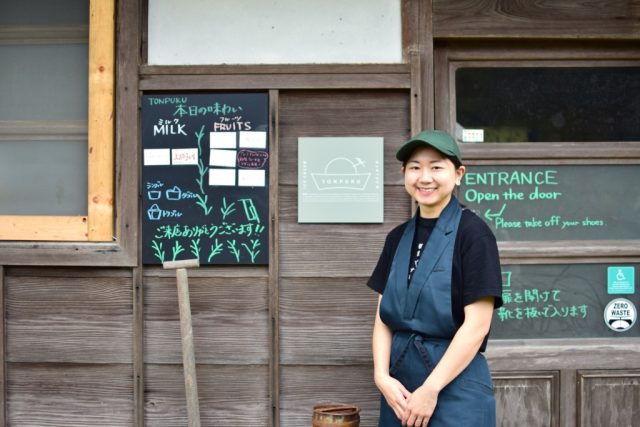 TONPUKU
本日の味わい
ミルク
MILK
フルーツ
FRUITS
シングル
ダブル
トリプル
ご来店ありがとうございます!!
TONPUKU
ENTRANCE
Open the door
Please take off your shoes
扉を開けて
靴を抜いで入ります
ZERO
WASTE